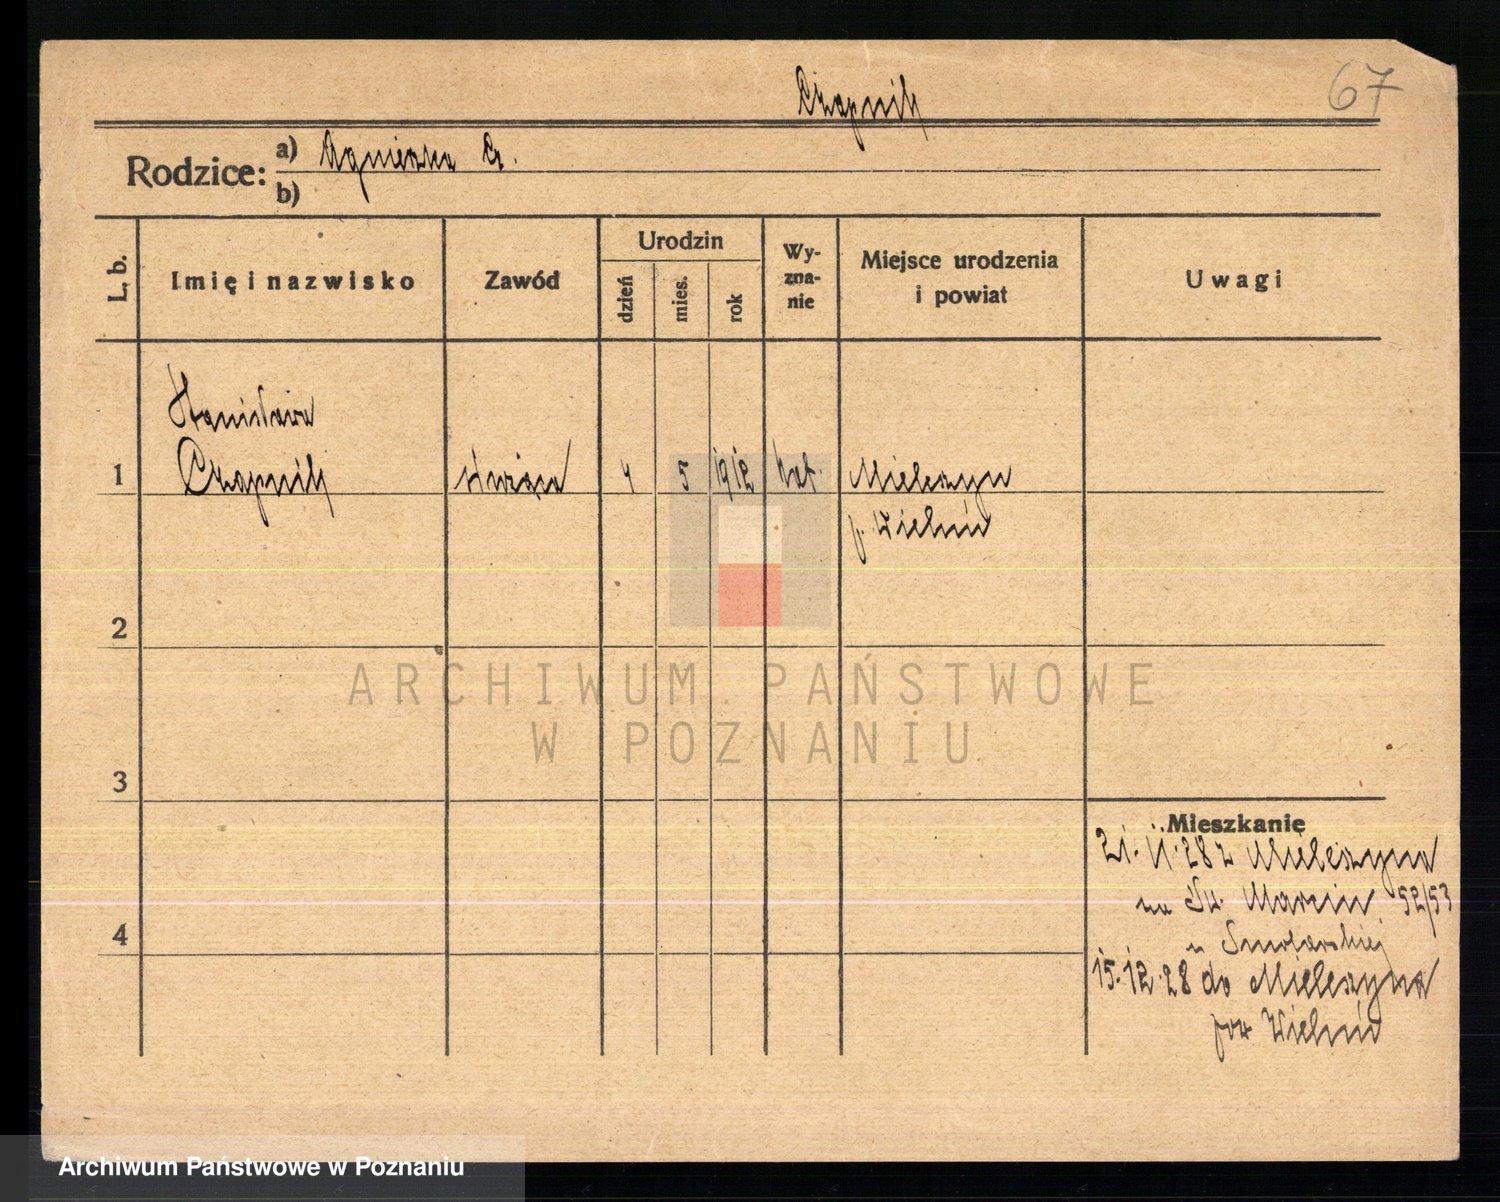 Czapnik
67
Rodzice: a) Agnieszka Cz.
b)
L. b.
Imię i nazwisko
Zawód
Urodzin
dzień
mies.
rok
Wy-
zna-
nie
Miejsce urodzenia
i powiat
Uwagi
Stanisława
1 Czapnik służąca 4 5 1912 kat. Mieleszyn
p. Wieluń
2
3
4
Mieszkanie
21.11.28 z Mieleszyna
na Św. Marcin 52/53
u Smolarskiej
15.12.28 do Mieleszyna
pow Wieluń
ARCHIWUM PAŃSTWOWE
W POZNANIU
Archiwum Państwowe w Poznaniu